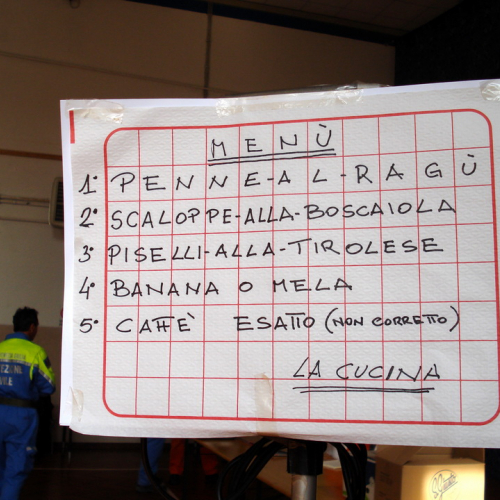 MENÙ
1° PENNE-AL-RAGÙ
2° SCALOPPE-ALLA-BOSCAIOLA
3° PISELLI-ALLA-TIROLESE
4° BANANA O MELA
5° CAFFÈ ESATTO (NON CORRETTO)
LA CUCINA